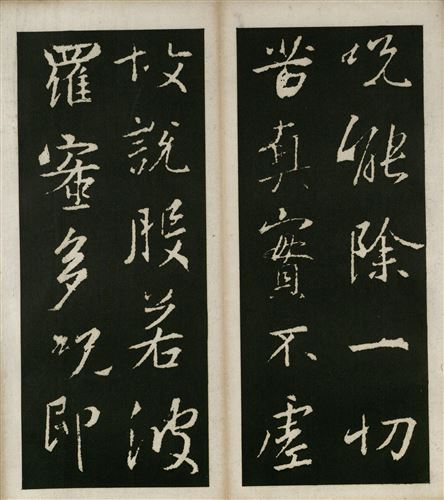 呪能除一切
苦真實不虛
故説般若波
羅蜜多呪即